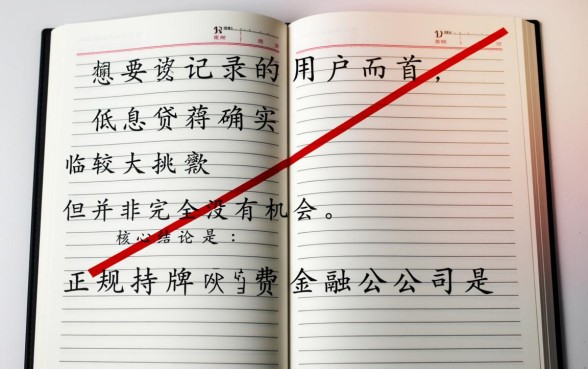 想要记录的用户而首，
低息贷确实
临较大挑
但并非完全没有机会。
核心结论是：
正规持牌费金融公公司是